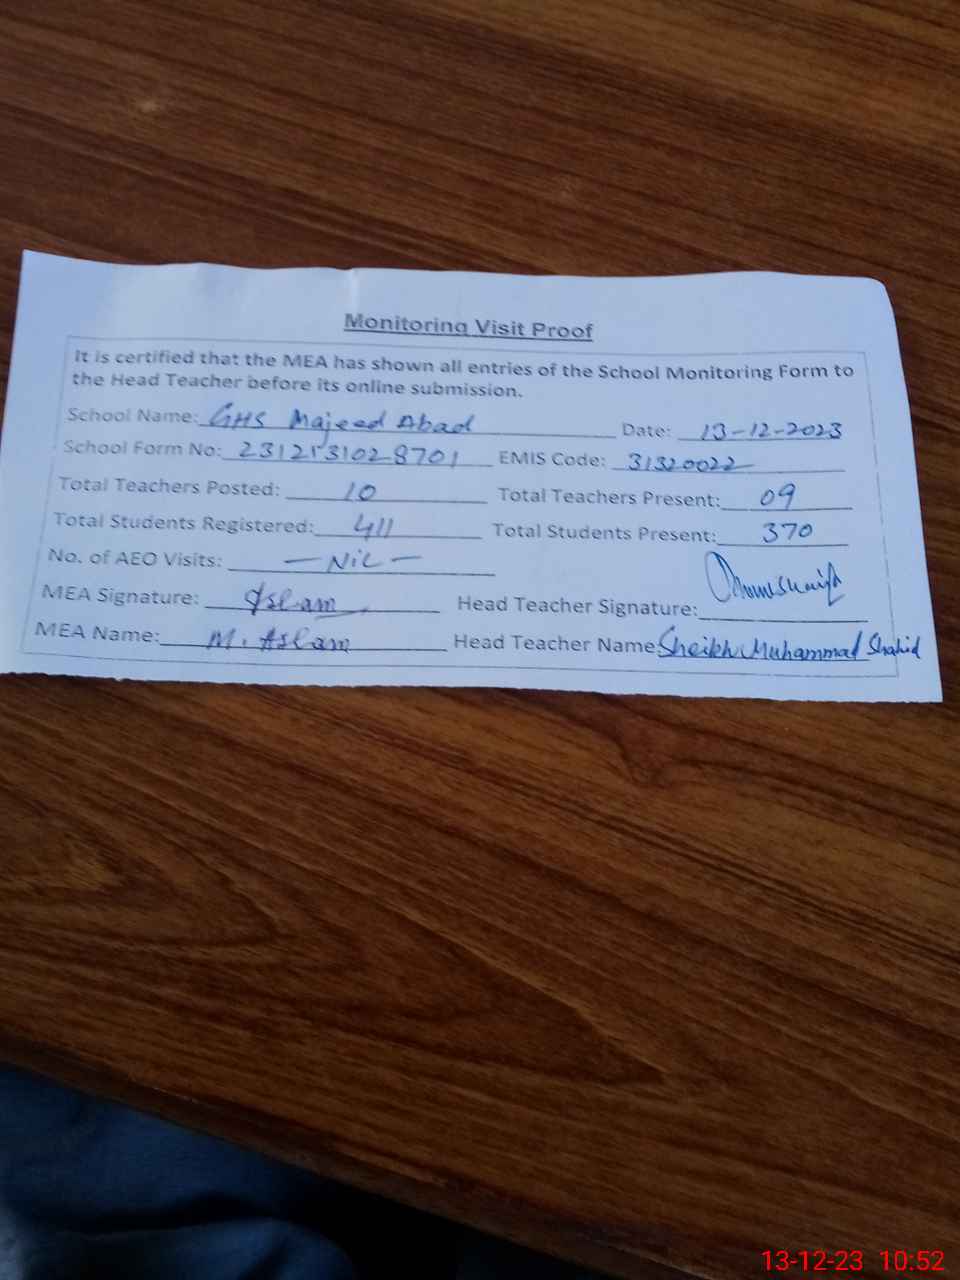 Monitoring Visit Proof
It is certified that the MEA has shown all entries of the School Monitoring Form to
the Head Teacher before its online submission.
School Name: GHS Majeed Abad Date: 13-12-2023
School Form No: EMIS Code: 31320022
Total Teachers Posted: 10 Total Teachers Present: 09
Total Students Registered: 411 Total Students Present: 370
No. of AEO Visits: - Nil -
MEA Signature: Aslam Head Teacher Signature:
MEA Name: M. Aslam Head Teacher Name Sheikh Muhammad Shahid
13-12-23 10:52